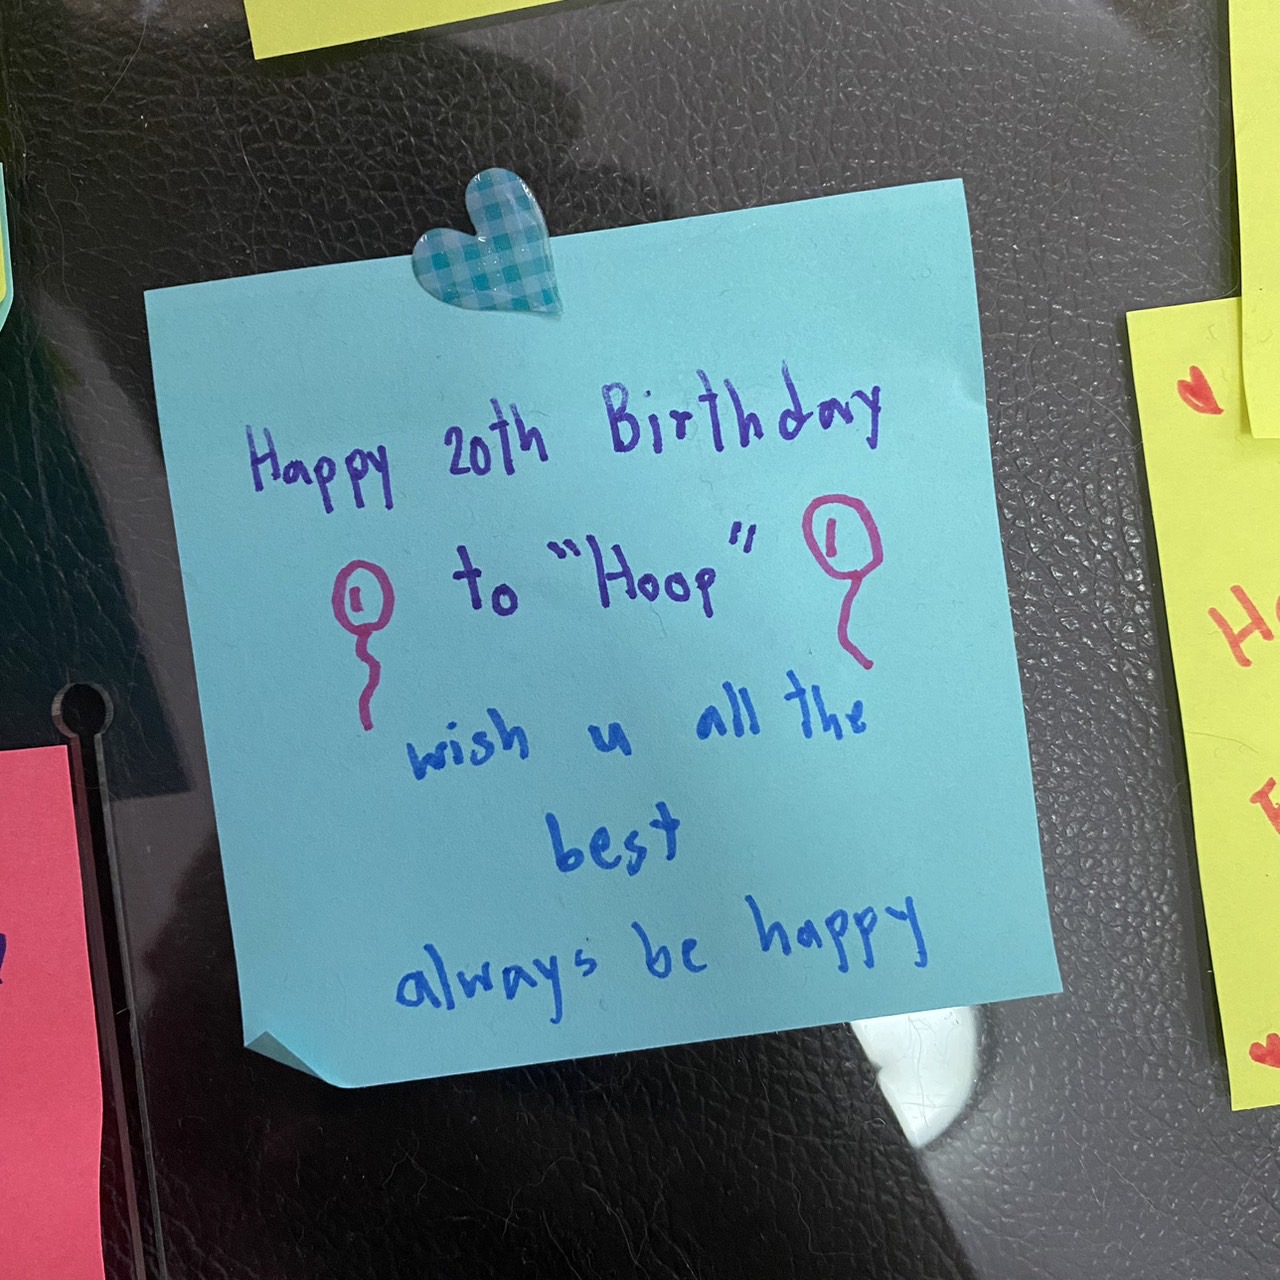 Happy 20th Birthday
to "Hoop"
wish u all the
best
always be happy